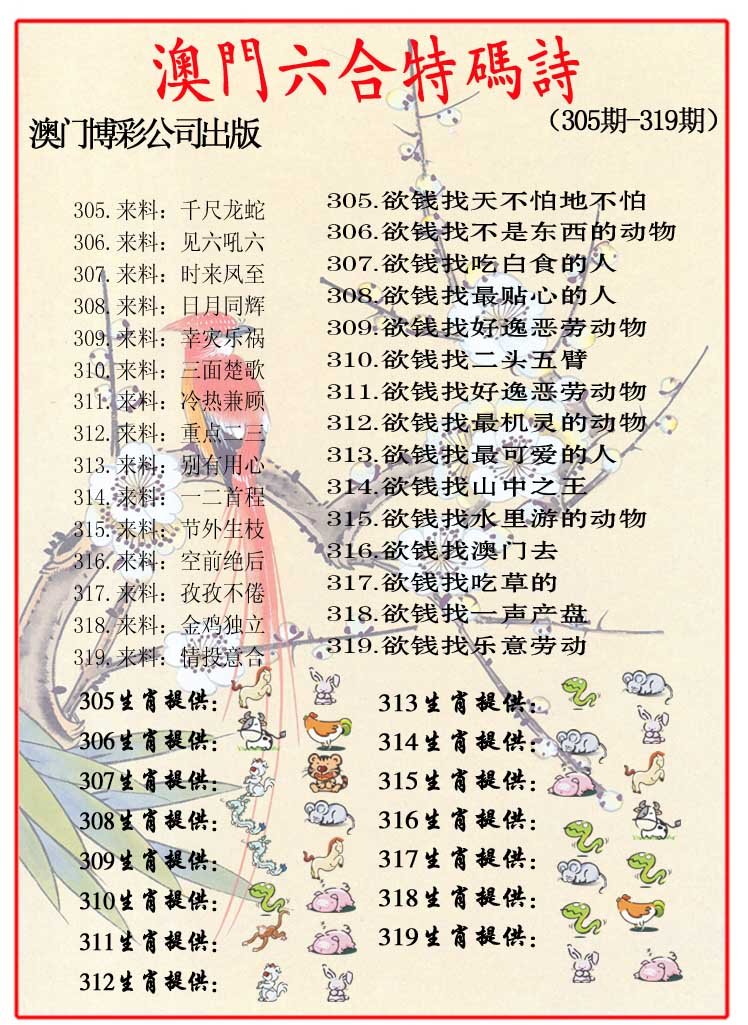 澳門六合特碼詩
澳门博彩公司出版
（305期-319期）
305.来料：千尺龙蛇
306.来料：见六吼六
307.来料：时来凤至
308.来料：日月同辉
309.来料：幸灾乐祸
310.来料：三面楚歌
311.来料：冷热兼顾
312.来料：重点二三
313.来料：别有用心
314.来料：一二首程
315.来料：节外生枝
316.来料：空前绝后
317.来料：孜孜不倦
318.来料：金鸡独立
319.来料：情投意合
305.欲钱找天不怕地不怕
306.欲钱找不是东西的动物
307.欲钱找吃白食的人
308.欲钱找最贴心的人
309.欲钱找好逸恶劳动物
310.欲钱找二头五臂
311.欲钱找好逸恶劳动物
312.欲钱找最机灵的动物
313.欲钱找最可爱的人
314.欲钱找山中之王
315.欲钱找水里游的动物
316.欲钱找澳门去
317.欲钱找吃草的
318.欲钱找一声产盘
319.欲钱找乐意劳动
305生肖提供：
306生肖提供：
307生肖提供：
308生肖提供：
309生肖提供：
310生肖提供：
311生肖提供：
312生肖提供：
313生肖提供：
314生肖提供：
315生肖提供：
316生肖提供：
317生肖提供：
318生肖提供：
319生肖提供：